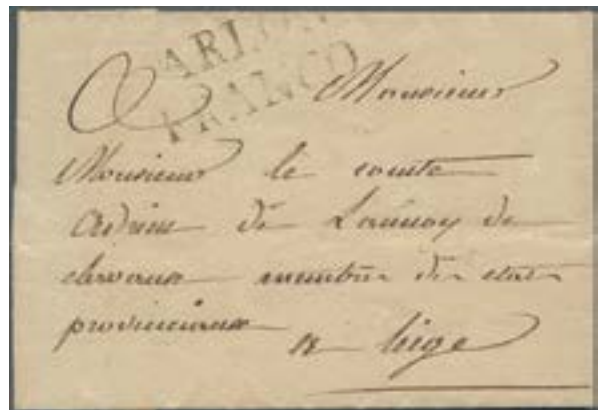 ARLON
FRANCO
A Monsieur
Monsieur le comte
Adrien de Lannoy de
clervaux membre des etats
provinciaux
a Liege